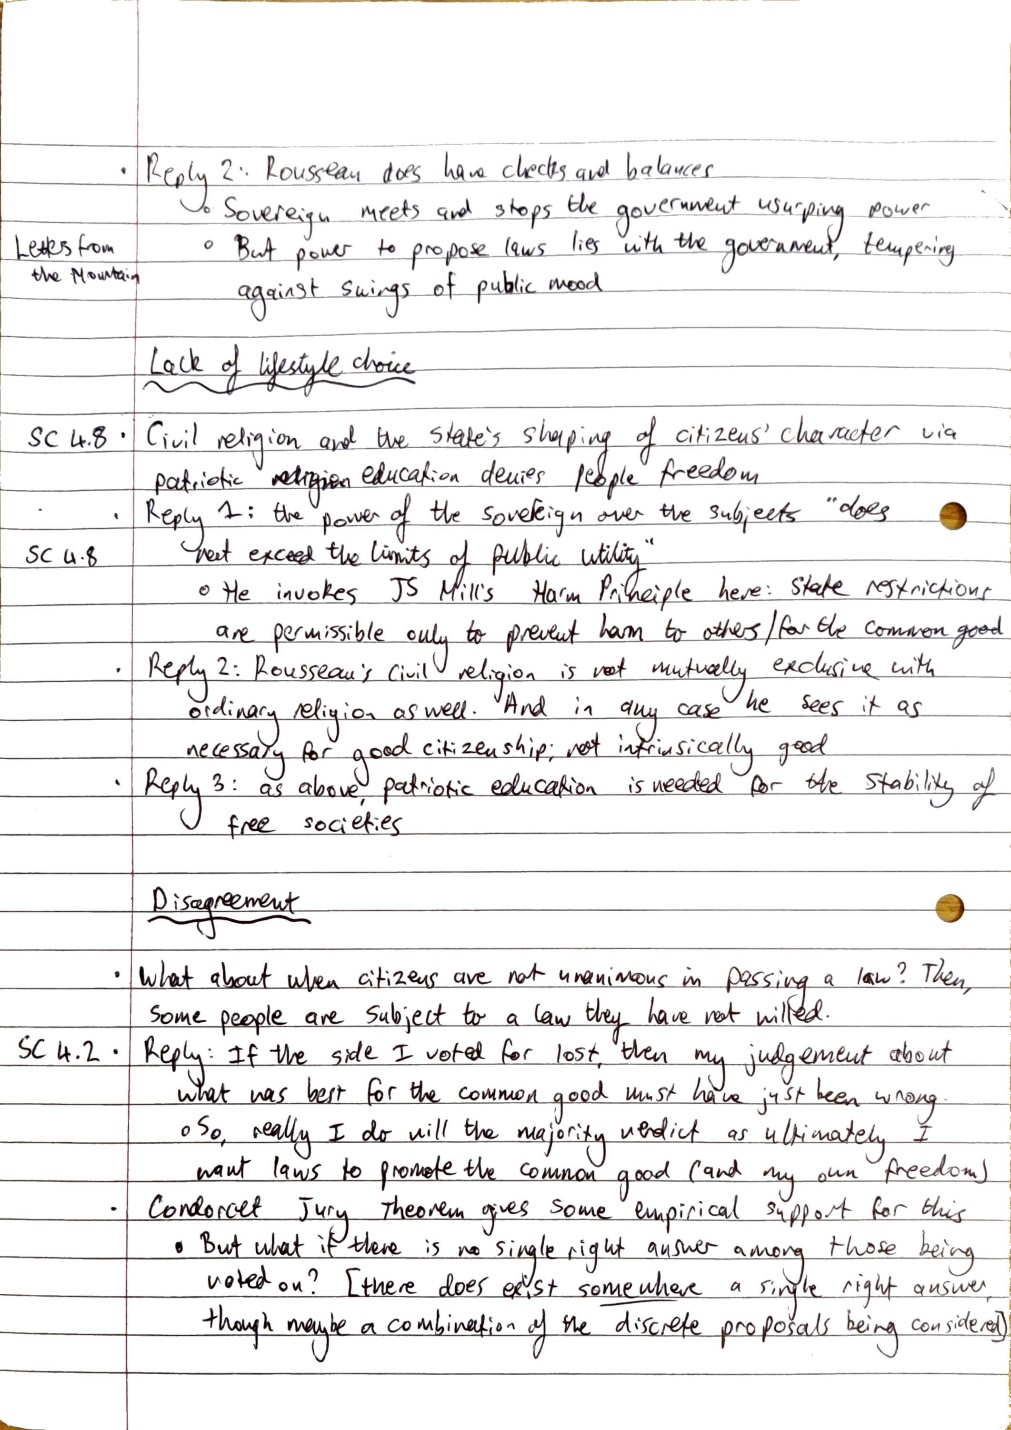 • Reply 2: Rousseau does have checks and balances
◦ Sovereign meets and stops the government usurping power
Letters from the Mountain
◦ But power to propose laws lies with the government, tempering
against swings of public mood
Lack of lifestyle choice
SC 4.8 • Civil religion and the state's shaping of citizens' character via
patriotic education denies people freedom
• Reply 1: the power of the sovereign over the subjects "does
SC 4.8 not exceed the limits of public utility"
◦ He invokes JS Mill's Harm Principle here: state restrictions
are permissible only to prevent harm to others/for the common good
• Reply 2: Rousseau's civil religion is not mutually exclusive with
ordinary religion as well. And in any case he sees it as
necessary for good citizenship; not intrinsically good
• Reply 3: as above, patriotic education is needed for the stability of
free societies
Disagreement
• What about when citizens are not unanimous in passing a law? Then,
some people are subject to a law they have not willed.
SC 4.2 • Reply: If the side I voted for lost, then my judgement about
what was best for the common good must have just been wrong.
◦ So, really I do will the majority verdict as ultimately I
want laws to promote the common good (and my own freedom)
• Condorcet Jury Theorem gives some empirical support for this
• But what if there is no single right answer among those being
voted on? [there does exist somewhere a single right answer,
though maybe a combination of the discrete proposals being considered]